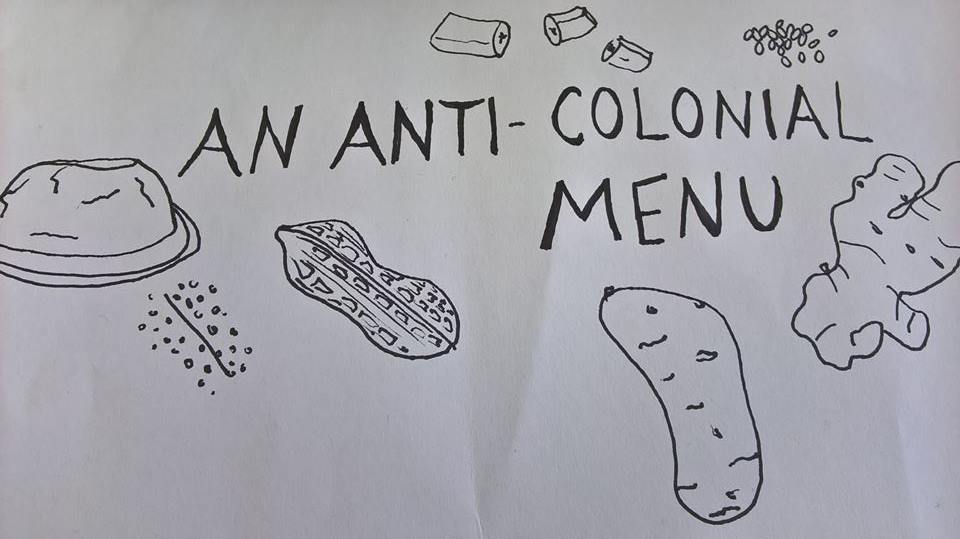 AN ANTI-COLONIAL
MENU